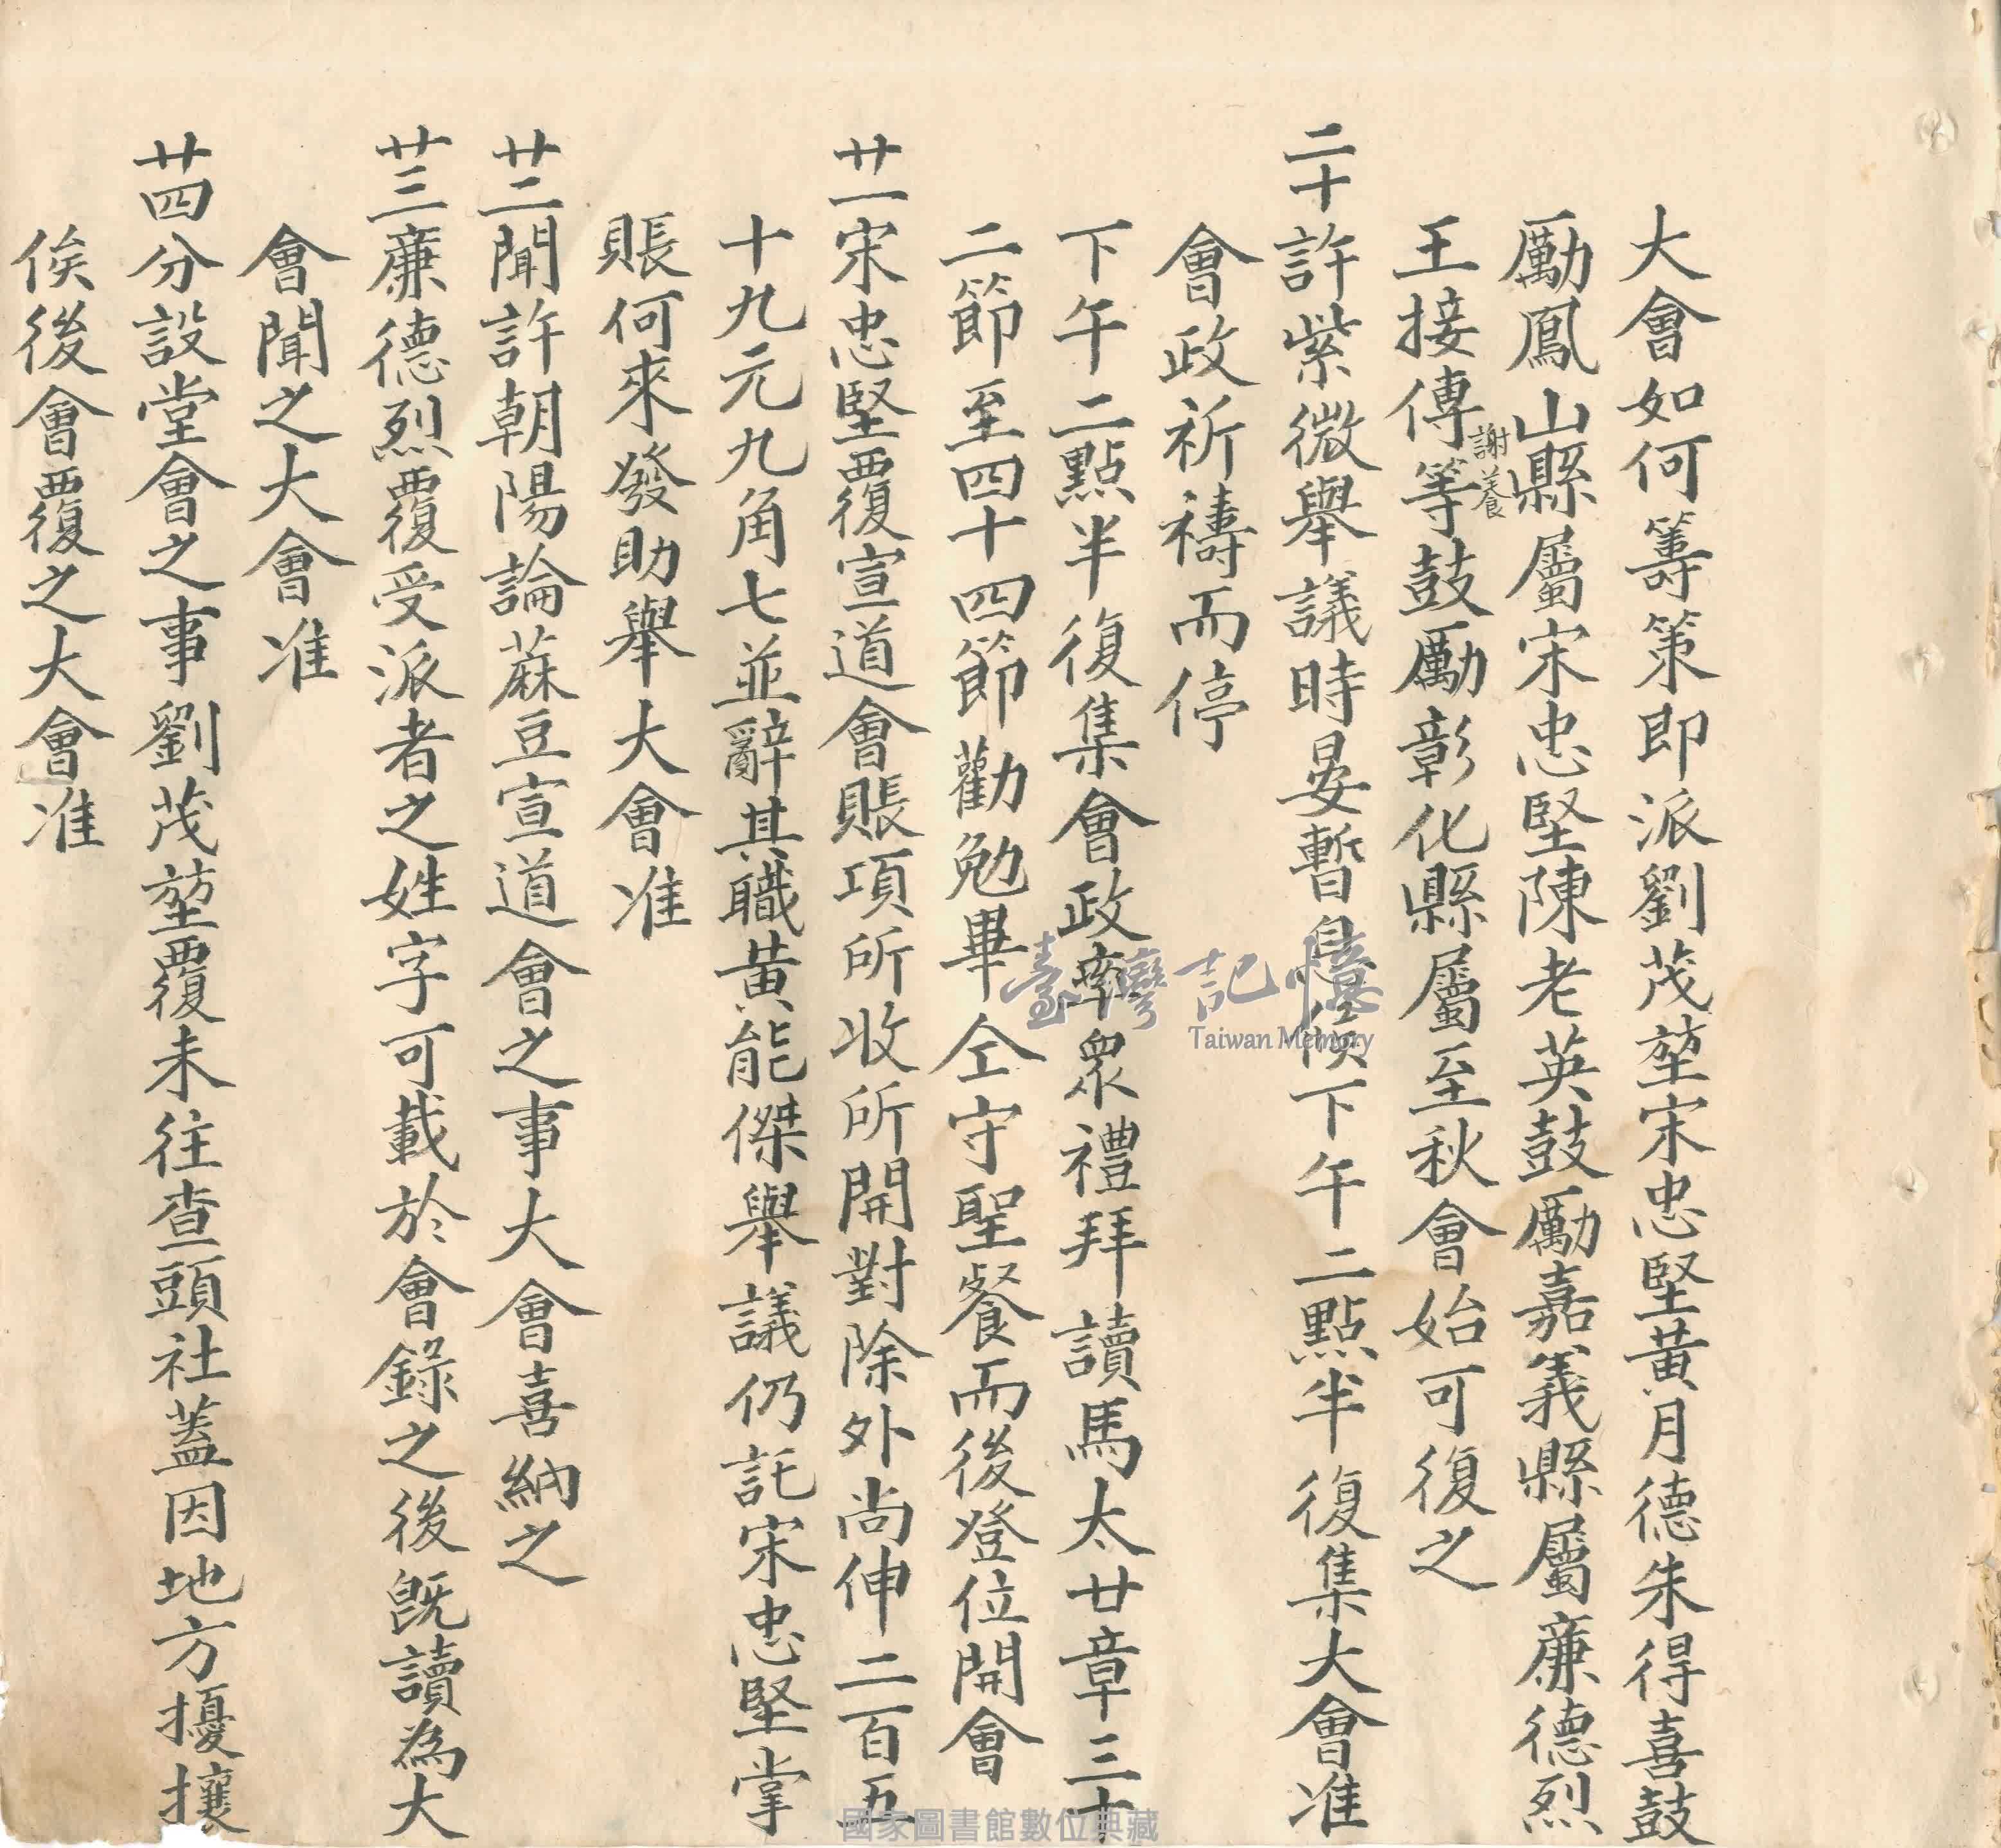 大會如何籌策即派劉茂堃宋忠堅黃月德朱得喜鼓
勵鳳山縣屬宋忠堅陳老英鼓勵嘉義縣屬廉德烈
王接傳等鼓勵彰化縣屬至秋會始可復之
謝養
二十許紫微舉議時晏暫息候下午二點半復集大會准
會政祈禱而停
下午二點半復集會政率衆禮拜讀馬太廿章三十
二節至四十四節勸勉畢仝守聖餐而後登位開會
廿一宋忠堅覆宣道會賬項所收所開對除外尚伸二百五
十九元九角七並辭其職黃能傑舉議仍託宋忠堅掌
賬何來發助舉大會准
廿二聞許朝陽論蔴豆宣道會之事大會喜納之
廿三廉德烈覆受派者之姓字可載於會錄之後旣讀為大
會聞之大會准
廿四分設堂會之事劉茂堃覆未往查頭社蓋因地方擾攘
俟後會覆之大會准
臺灣記憶
Taiwan Memory
國家圖書館數位典藏